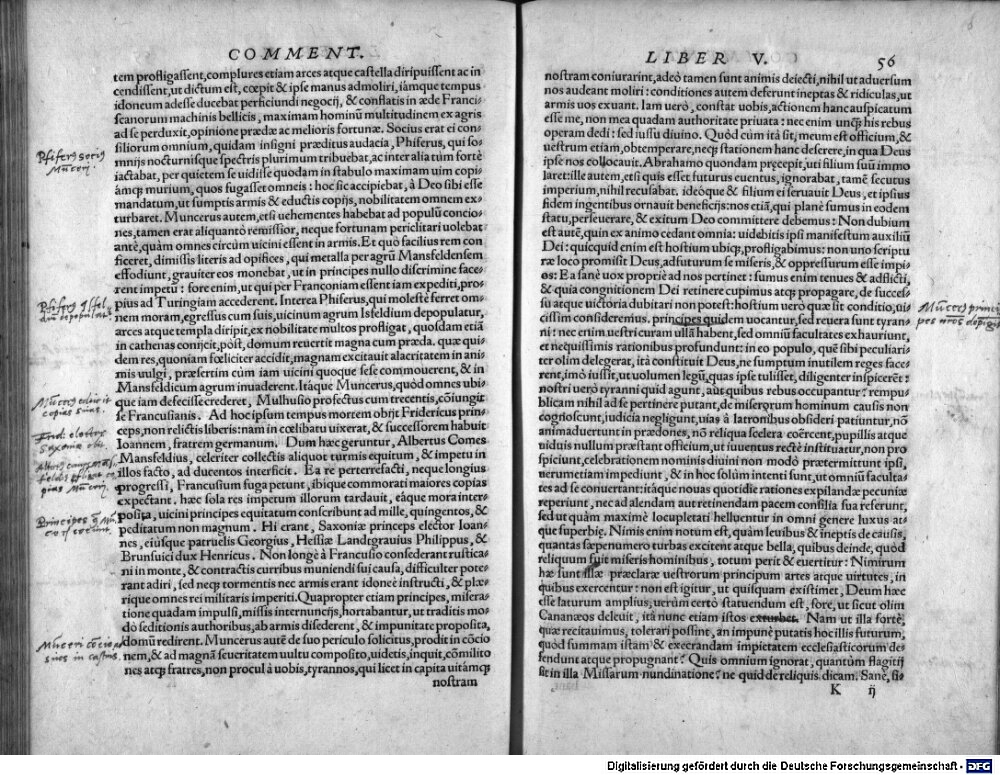 COMMENT.
tem profligassent, complures etiam arces atque castella diripuissent ac in
cendissent, ut dictum est, cœpit & ipse manus admoliri, iámque tempus
idoneum adesse ducebat perficiundi negocij, & conflatis in æde Franci-
scanorum machinis bellicis, maximam hominũ multitudinem ex agris
ad se perduxit, opinione prædæ ac melioris fortunæ. Socius erat ei con-
siliorum omnium, quidam insigni præditus audacia, Phiferus, qui so-
mnijs nocturnisque spectris plurimum tribuebat, ac inter alia tùm fortè
iactabat, per quietem se uidisse quodam in stabulo maximam uim copi-
ámque murium, quos fugasset omneis: hoc sic accipiebat, à Deo sibi esse
mandatum, ut sumptis armis & eductis copijs, nobilitatem omnem ex-
turbaret. Muncerus autem, etsi uehementes habebat ad populũ concio-
nes, tamen erat aliquantò remissior, neque fortunam periclitari uolebat
antè, quàm omnes circùm uicini essent in armis. Et quò facilius rem con
ficeret, dimissis literis ad opifices, qui metalla per agrũ Mansfeldensem
effodiunt, grauiter eos monebat, ut in principes nullo discrimine face-
rent impetũ: fore enim, ut qui per Franconiam essent iam expediti, pro-
pius ad Turingiam accederent. Interea Phiferus, qui molestè ferret om-
nem moram, egressus cum suis, uicinum agrum Isfeldium depopulatur,
arces atque templa diripit, ex nobilitate multos profligat, quosdam etiã
in cathenas conijcit, pòst, domum reuertit magna cum præda. quæ qui-
dem res, quoniam fœliciter accidit, magnam excitauit alacritatem in ani-
mis vulgi, præsertim cùm iam uicini quoque sese commouerent, & in
Mansfeldicum agrum inuaderent. Itáque Muncerus, quòd omnes ubi-
que iam defecisse crederet, Mulhusio profectus cum trecentis, cõiungit
se Francusianis. Ad hoc ipsum tempus mortem obijt Fridericus prin-
ceps, non relictis liberis: nam in cœlibatu uixerat, & successorem habuit
Ioannem, fratrem germanum. Dum hæc geruntur, Albertus Comes
Mansfeldius, celeriter collectis aliquot turmis equitum, & impetu in
illos facto, ad ducentos interficit. Ea re perterrefacti, neque longius
progressi, Francusium fuga petunt, ibique commorati maiores copias
expectant. hæc sola res impetum illorum tardauit, eáque mora inter-
posita, uicini principes equitatum conscribunt ad mille, quingentos, &
peditatum non magnum. Hi erant, Saxoniæ princeps elector Ioan-
nes, eiúsque patruelis Georgius, Hessiæ Landgrauius Philippus, &
Brunsuici dux Henricus. Non longè à Francusio consederant rustica-
ni in monte, & contractis curribus muniendi sui causa, difficulter pote-
rant adiri, sed neq; tormentis nec armis erant idoneè instructi, & plæ-
rique omnes rei militaris imperiti. Quapropter etiam principes, misera-
tione quadam impulsi, missis internuncijs, hortabantur, ut traditis mo-
dò seditionis authoribus, ab armis discederent, & impunitate proposita,
domũ redirent. Muncerus autẽ de suo periculo solicitus, prodit in cõcio
nem, & ad magnã seueritatem uultu composito, uidetis, inquit, cõmilito
nes atq; fratres, non procul à uobis, tyrannos, qui licet in capita uitámq;
nostram
LIBER V. 56
nostram coniurarint, adeò tamen sunt animis deiecti, nihil ut aduersum
nos audeant moliri: conditiones autem deferunt ineptas & ridiculas, ut
armis uos exuant. Iam uerò, constat uobis, actionem hanc auspicatum
esse me, non mea quadam authoritate priuata: nec enim unq̃; his rebus
operam dedi: sed iussu diuino. Quòd cùm ità sit, meum est officium, &
uestrum etiam, obtemperare, neq; stationem hanc deserere, in qua Deus
ipse nos collocauit. Abrahamo quondam pręcepit, uti filium suũ immo
laret: ille autem, etsi quis esset futurus euentus, ignorabat, tamẽ secutus
imperium, nihil recusabat. ideóque & filium ei seruauit Deus, et ipsius
fidem ingentibus ornauit beneficijs: nos etiã, qui planè sumus in eodem
statu, perseuerare, & exitum Deo committere debemus: Non dubium
est autẽ, quin ex animo cedant omnia: uidebitis ipsi manifestum auxiliũ
Dei: quicquid enim est hostium ubiq;, profligabimus: non uno scriptu
ræ loco promisit Deus, adfuturum se miseris, & oppressurum esse impi-
os: Ea sanè uox propriè ad nos pertinet: sumus enim tenues & adflicti,
& quia congnitionem Dei retinere cupimus atq; propagare, de succes-
su atque uictoria dubitari non potest: hostium uerò quæ sit conditio, ui-
cissim consideremus. principes quidem uocantur, sed reuera sunt tyran-
ni: nec enim uestri curam ullã habent, sed omniũ facultates exhauriunt,
et nequissimis rationibus profundunt: in eo populo, quẽ sibi peculiari-
ter olim delegerat, ità constituit Deus, ne sumptum inutilem reges face-
rent, imò iussit, ut uolumen legũ, quas ipse tulisset, diligenter inspicerẽt:
nostri uerò tyranni quid agunt, aut quibus rebus occupantur: rempu-
blicam nihil ad se pertinere putant, de miserorum hominum causis non
cognoscunt, iudicia negligunt, uias à latronibus obsideri patiuntur, nõ
animaduertunt in prædones, nõ reliqua scelera coërcent, pupillis atque
uiduis nullum præstant officium, ut iuuentus rectè instituatur, non pro
spiciunt, celebrationem nominis diuini non modò prætermittunt ipsi,
uerumetiam impediunt, & in hoc solùm intenti sunt, ut omniũ faculta-
tes ad se conuertant: itáque nouas quotidie rationes expilandæ pecuniæ
reperiunt, nec ad alendam aut retinendam pacem consilia sua referunt,
sed ut quàm maximè locupletati helluentur in omni genere luxus at-
que superbię. Nimis enim notum est, quàm leuibus & ineptis de causis,
quantas sæpenumero turbas excitent atque bella, quibus deinde, quòd
reliquum fuit miseris hominibus, totum perit & euertitur: Nimirum
hæ sunt illæ præclaræ uestrorum principum artes atque uirtutes, in
quibus exercentur: non est igitur, ut quisquam existimet, Deum hæc
esse laturum amplius, uerùm certò statuendum est, fore, ut sicut olim
Cananæos deleuit, ità nunc etiam istos exturbet. Nam ut illa fortè,
quæ recitauimus, tolerari possint, an impunè putatis hoc illis futurum,
quòd summam istam & execrandam impietatem ecclesiasticorum de-
fendunt atque propugnant? Quis omnium ignorat, quantùm flagitij
sit in illa Missarum nundinatione? ne quid de reliquis dicam. Sanè, si-
K ij
Digitalisierung gefördert durch die Deutsche Forschungsgemeinschaft - DFG